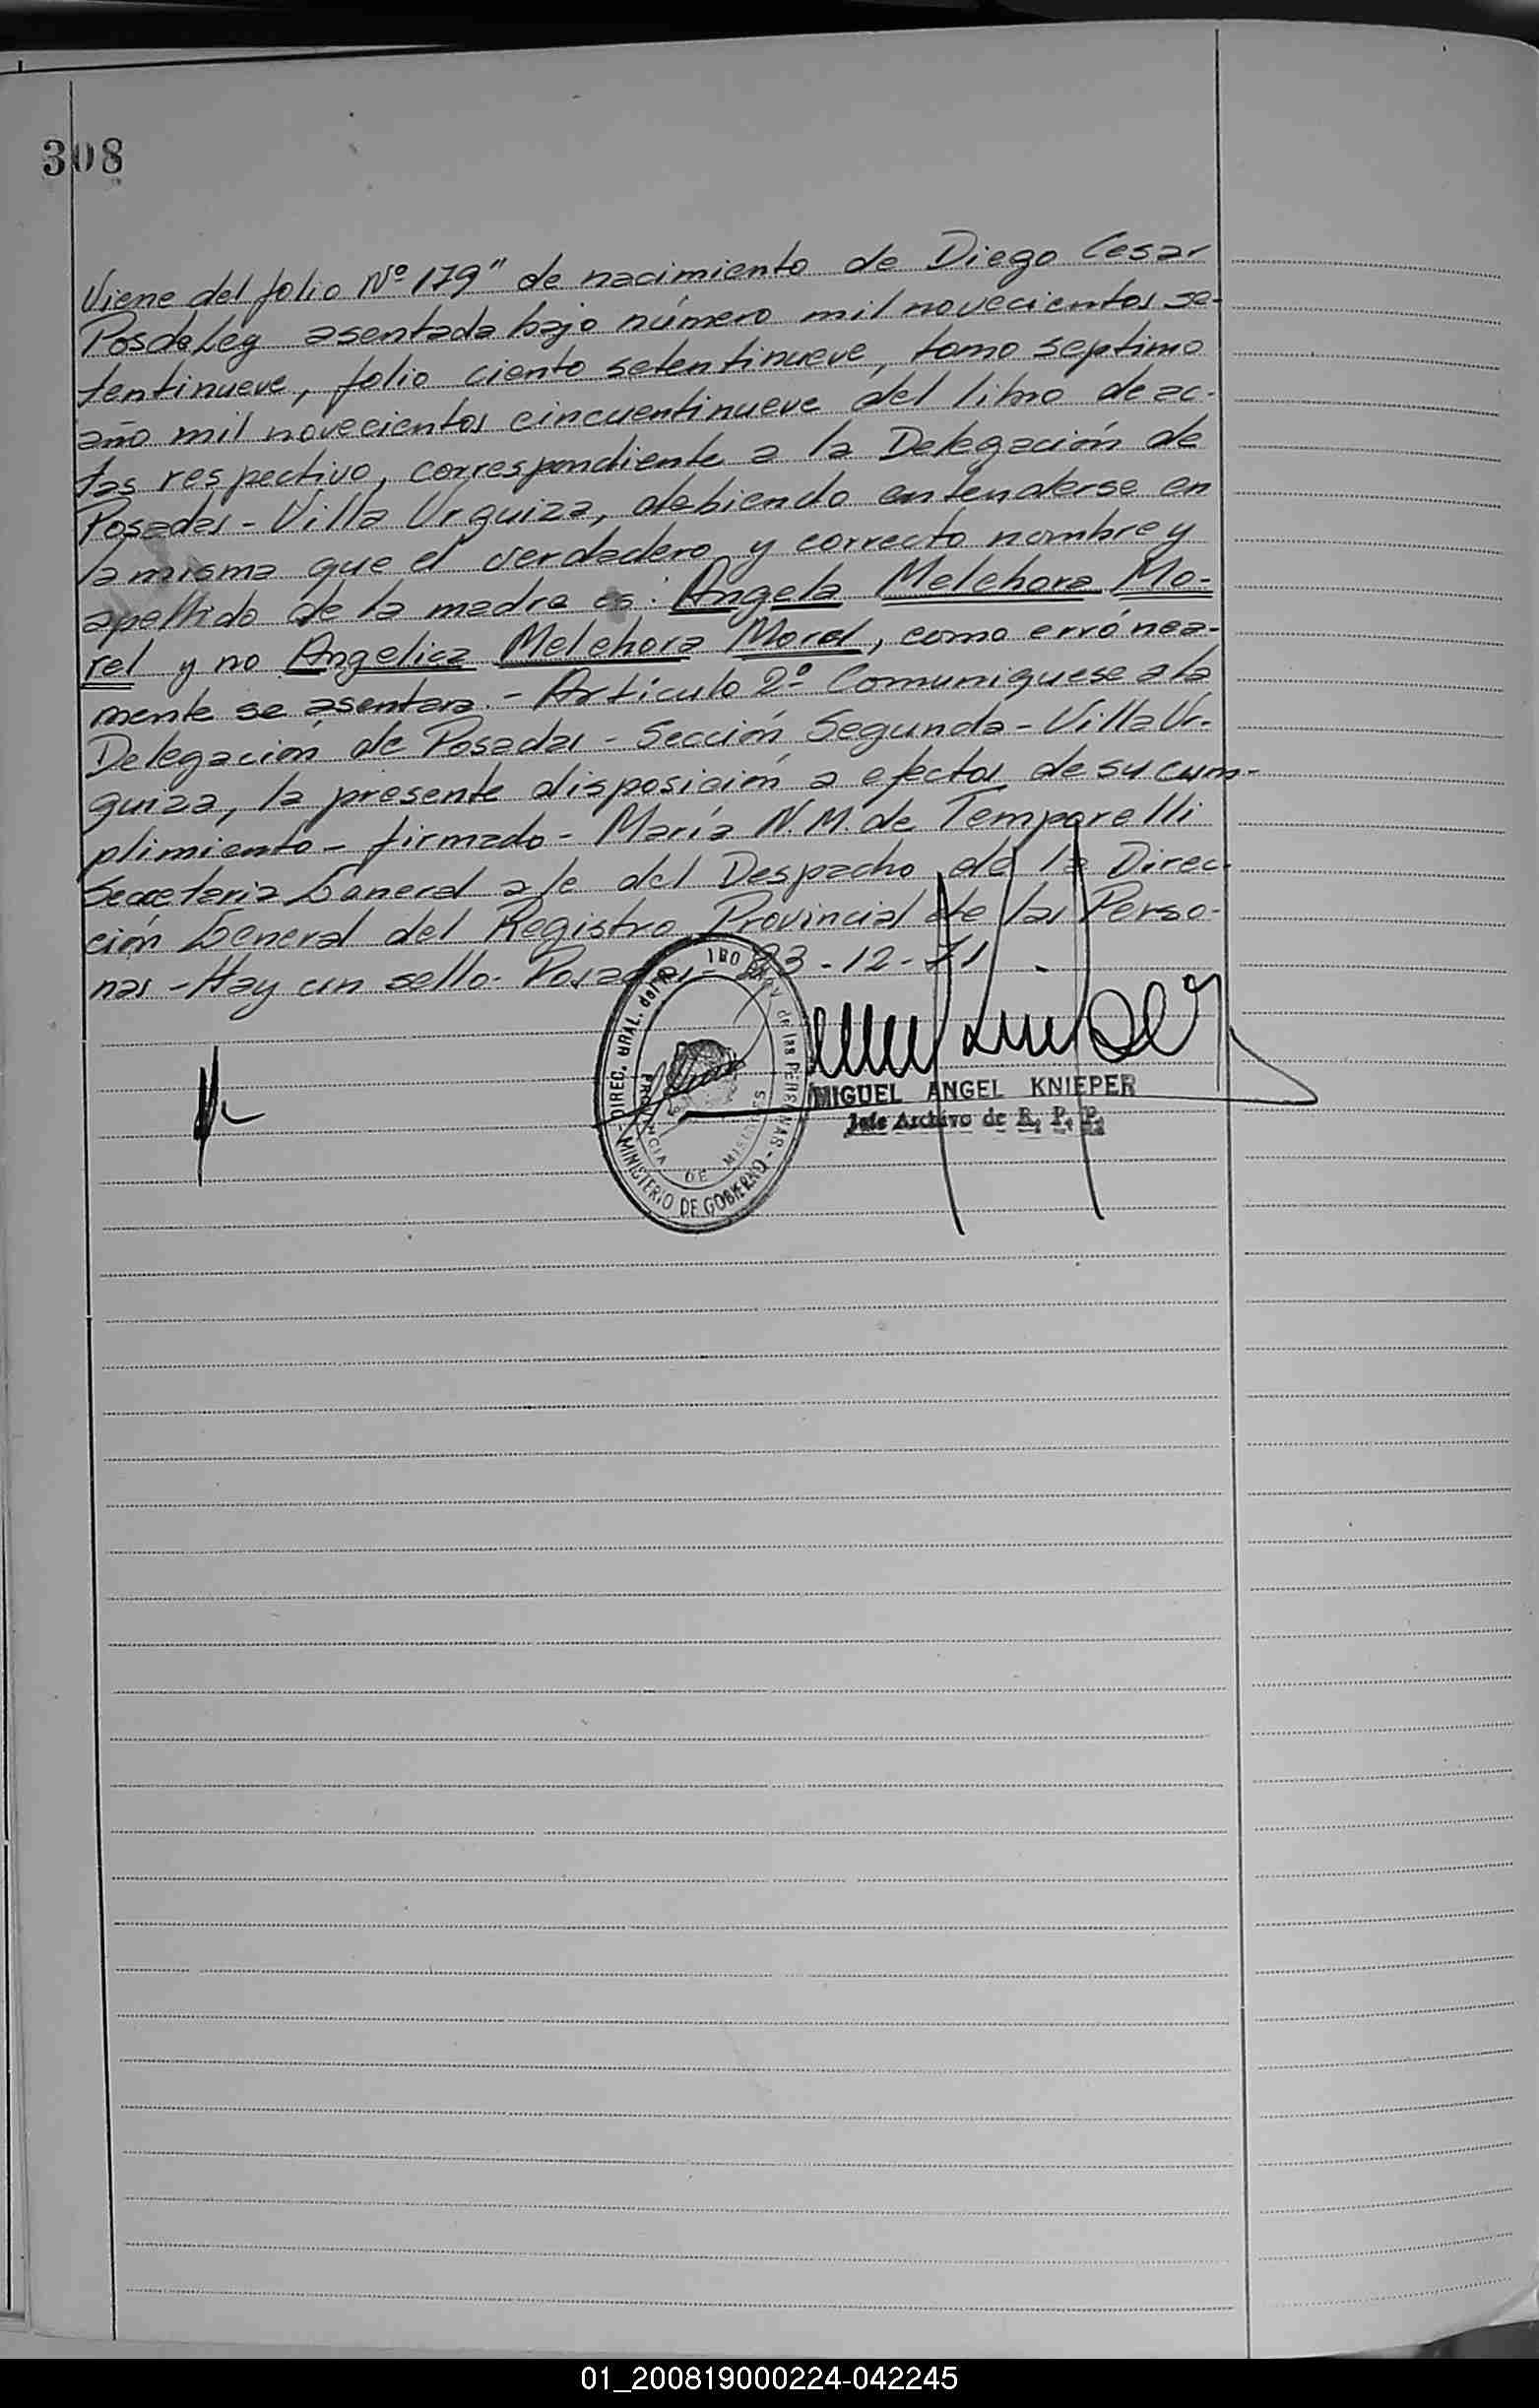 308
Viene del folio Nº 179" de nacimiento de Diego Cesar
Posdeley asentada bajo número mil novecientos se-
tentinueve, folio ciento setentinueve, tomo septimo
año mil novecientos cincuentinueve del libro de ac-
tas respectivo, correspondiente a la Delegación de
Posadas - Villa Urquiza, debiendo entenderse en
la misma que el verdadero y correcto nombre y
apellido de la madre es: Angela Melchora Mo-
rel y no Angelica Melchora Morel, como errónea-
mente se asentara. - Artículo 2º Comuniquese a la
Delegación de Posadas - Sección Segunda - Villa Ur-
quiza, la presente disposición a efectos de su cum-
plimiento - firmado - María N. M. de Temporelli
Secretaria General a/c del Despacho de la Direc-
ción General del Registro Provincial de las Perso-
nas - Hay un sello - Posadas - 23 - 12 - 71
DIREC. GRAL. del R. PROV. de las PERSONAS - MINISTERIO DE GOBIERNO
PROVINCIA DE MISIONES
MIGUEL ANGEL KNIEPER
Jefe Archivo de R. P. P.
01_200819000224-042245